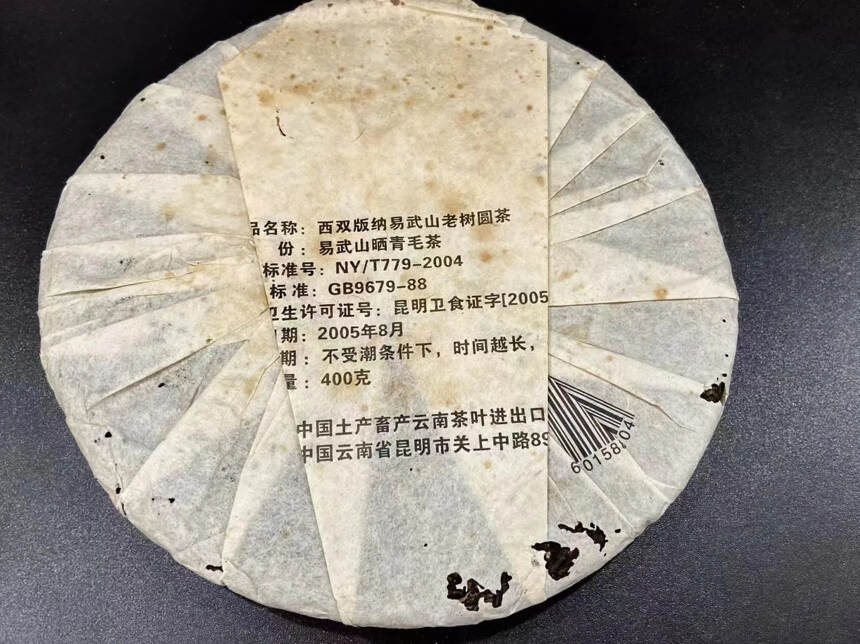 品名称：西双版纳易武山老树圆茶
份：易武山晒青毛茶
标准号：NY/T779-2004
标准：GB9679-88
卫生许可证号：昆明卫食证字[2005
期：2005年8月
期：不受潮条件下，时间越长，
量：400克
中国土产畜产云南茶叶进出口
中国云南省昆明市关上中路89
60158 04